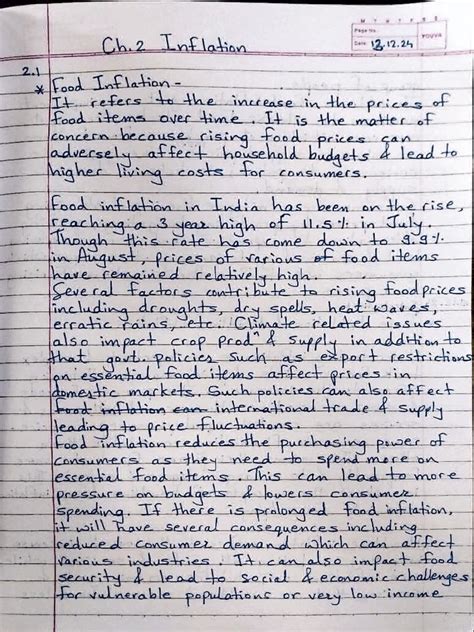 M T W T F S S
Page No.:
Date: 13.12.24
YOUVA
Ch. 2 Inflation
2.1
* Food Inflation -
It refers to the increase in the prices of
food items over time. It is the matter of
concern because rising food prices can
adversely affect household budgets & lead to
higher living costs for consumers.
Food inflation in India has been on the rise,
reaching a 3 year high of 11.5% in July.
Though this rate has come down to 9.9%
in August, prices of various of food items
have remained relatively high.
Several factors contribute to rising food prices
including droughts, dry spells, heat waves,
erratic rains, etc. Climate related issues
also impact crop prodⁿ & supply in addition to
that govt. policies such as export restrictions
on essential food items affect prices in
domestic markets. Such policies can also affect
food inflation can international trade & supply
leading to price fluctuations.
Food inflation reduces the purchasing power of
consumers as they need to spend more on
essential food items. This can lead to more
pressure on budgets & lowers consumer
spending. If there is prolonged food inflation,
it will have several consequences including
reduced consumer demand which can affect
various industries. It can also impact food
security & lead to social & economic challenges
for vulnerable populations or very low income